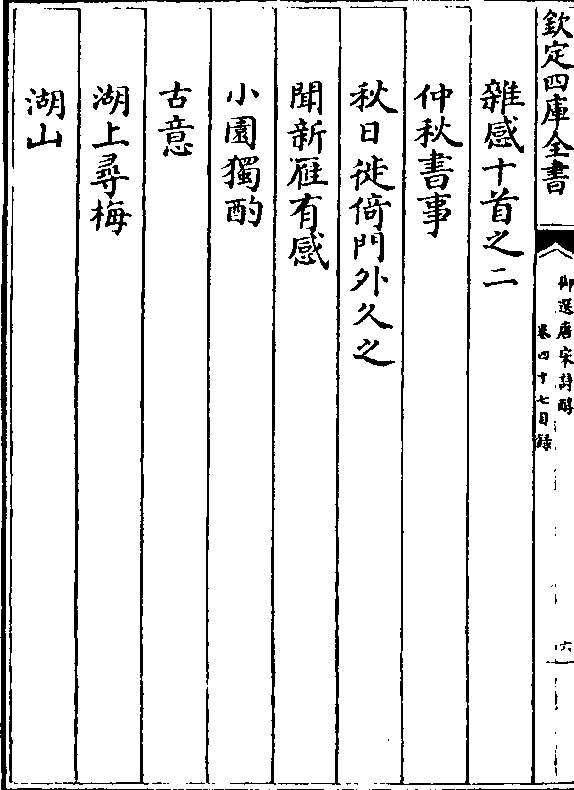 欽定四庫全書
御選唐宋詩醇
卷四十七目録
六
雜感十首之二
仲秋書事
秋日徙倚門外久之
聞新雁有感
小園獨酌
古意
湖上尋梅
湖山